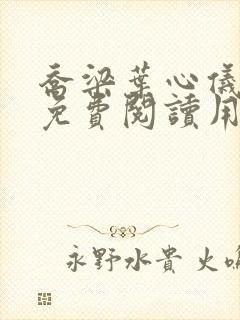 喬梁葉心儀
免費閱讀用
永野水貴 火鳴